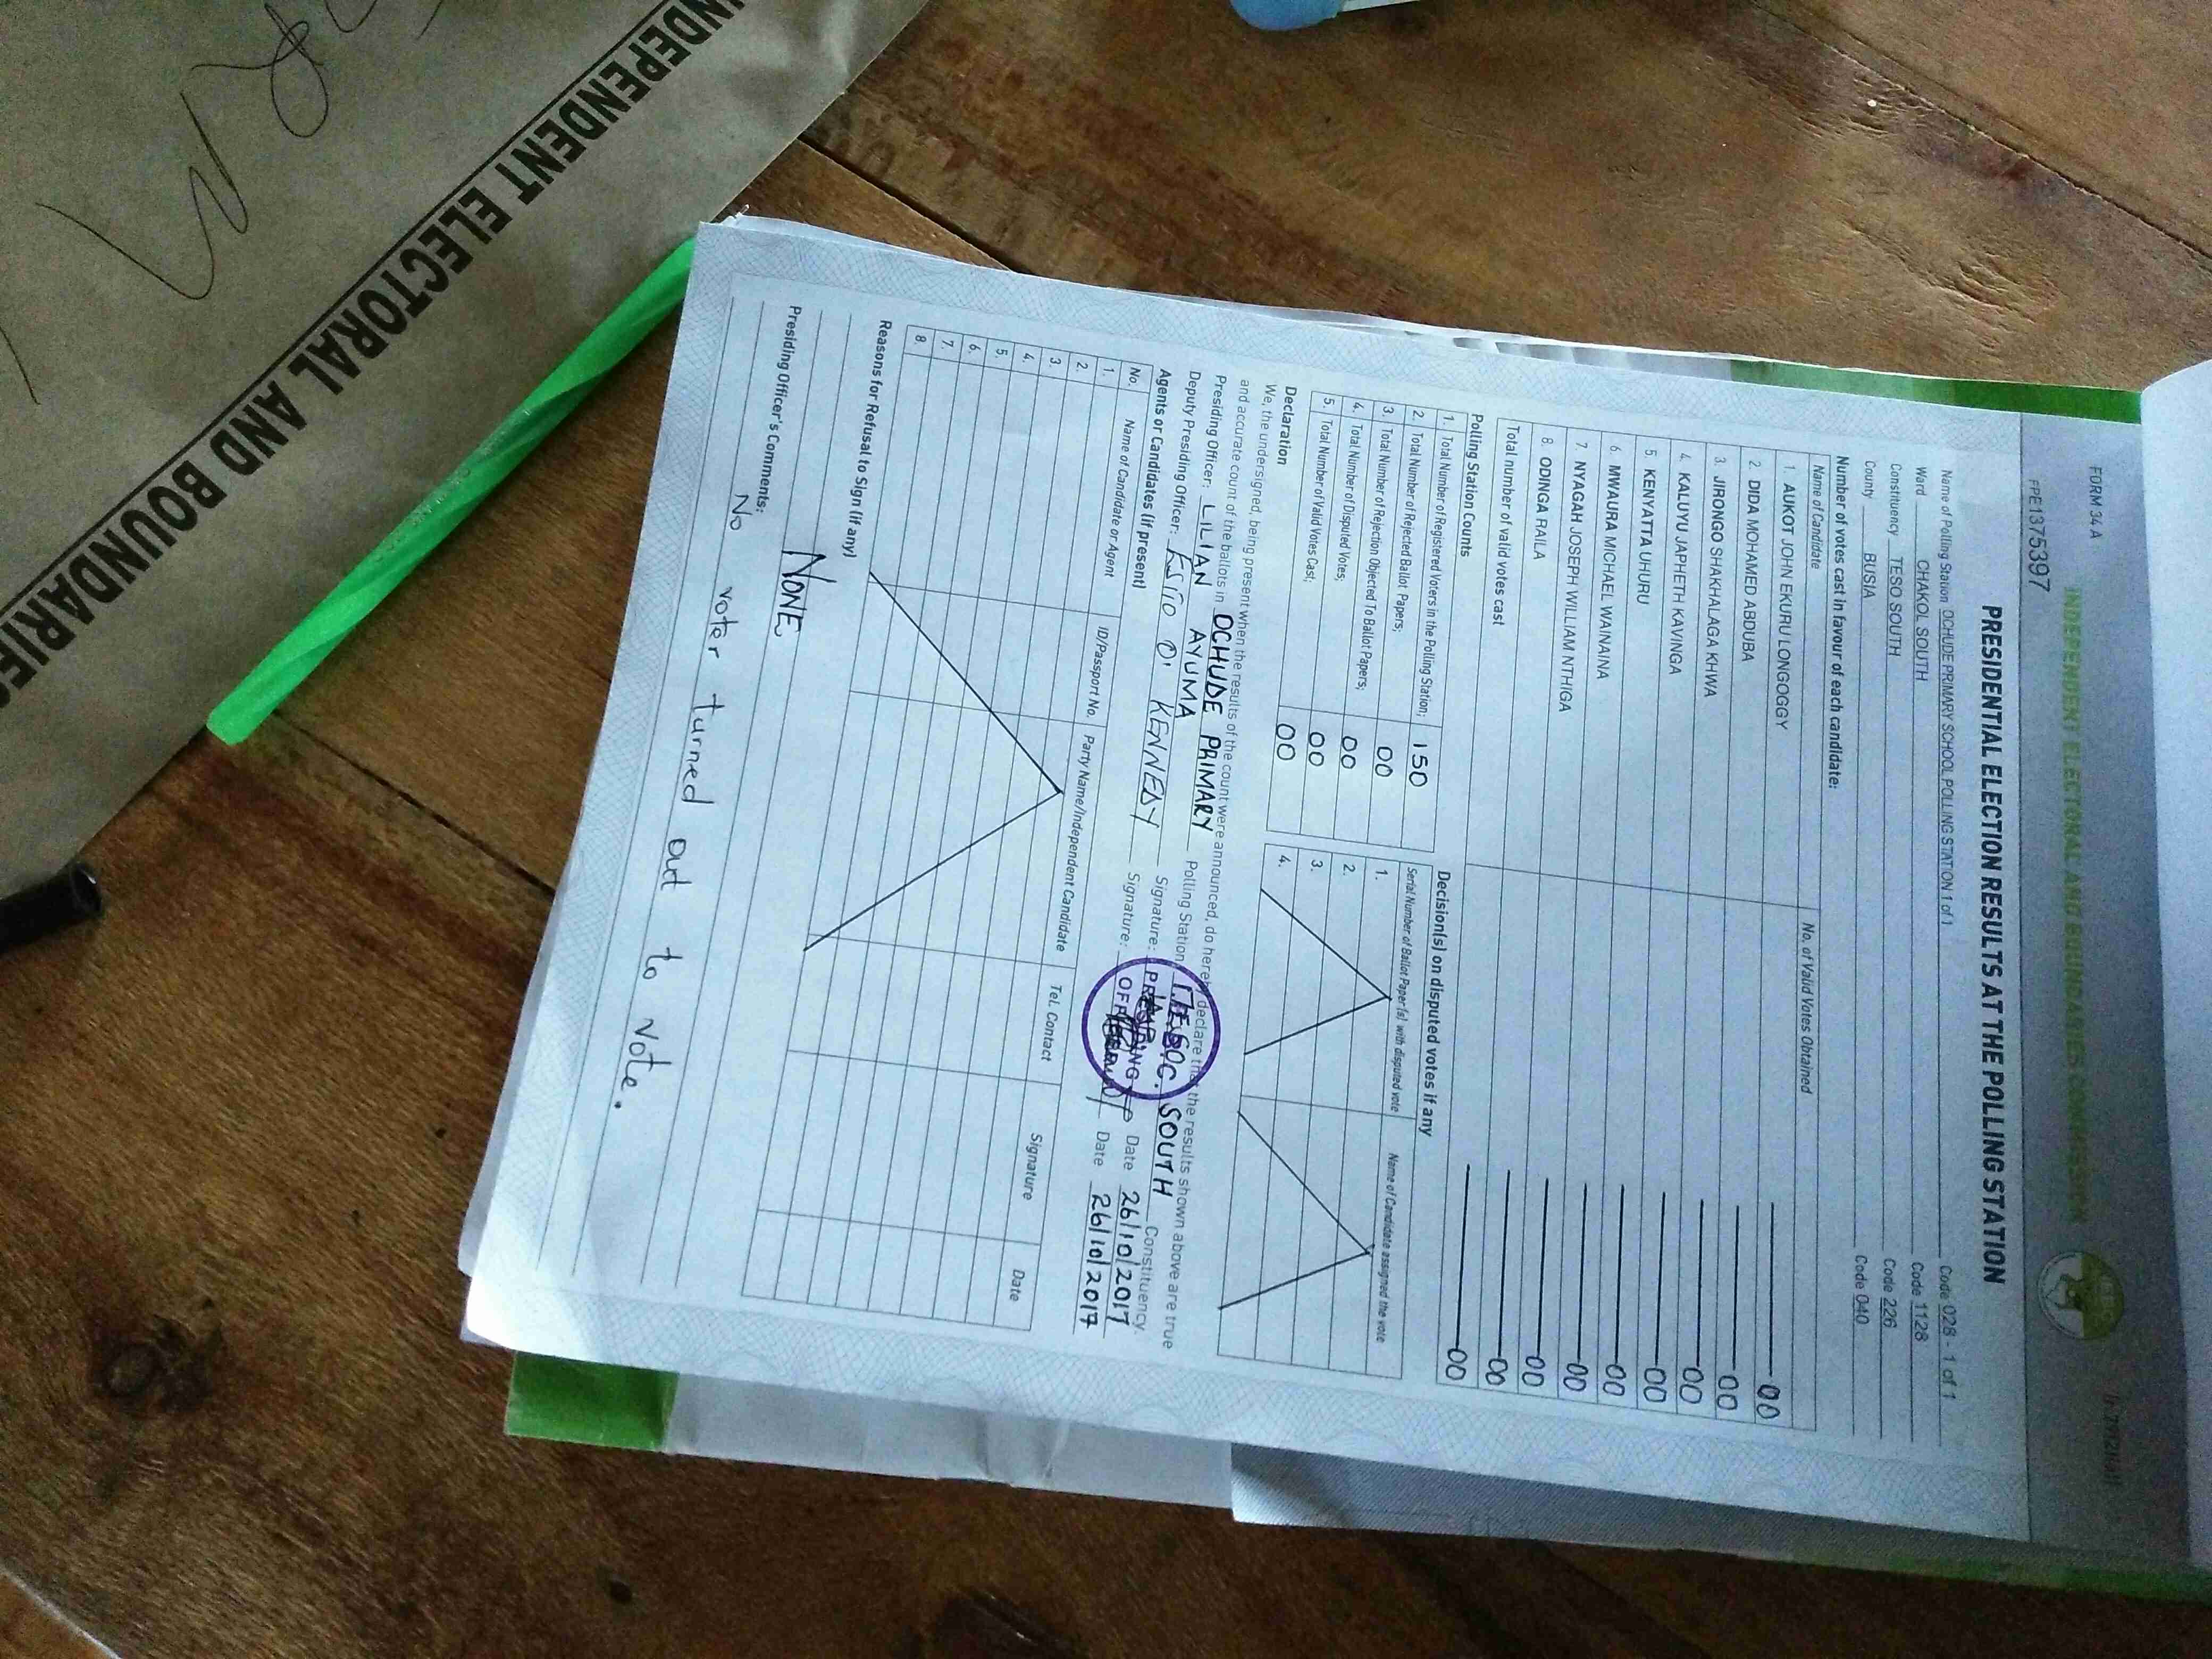 INDEPENDENT ELECTORAL AND BOUNDARIES
FORM 34 A
INDEPENDENT ELECTORAL AND BOUNDARIES COMMISSION
FPE1375397
PRESIDENTIAL ELECTION RESULTS AT THE POLLING STATION
Name of Polling Station OCHUDE PRIMARY SCHOOL POLLING STATION 1 of 1 Code 028 - 1 of 1
Ward CHAKOL SOUTH Code 1128
Constituency TESO SOUTH Code 226
County BUSIA Code 040
Number of votes cast in favour of each candidate:
Name of Candidate No. of Valid Votes Obtained
1. AUKOT JOHN EKURU LONGOGGY 00
2. DIDA MOHAMED ABDUBA 00
3. JIRONGO SHAKHALAGA KHWA 00
4. KALUYU JAPHETH KAVINGA 00
5. KENYATTA UHURU 00
6. MWAURA MICHAEL WAINAINA 00
7. NYAGAH JOSEPH WILLIAM NTHIGA 00
8. ODINGA RAILA 00
Total number of valid votes cast 00
Polling Station Counts
1. Total Number of Registered Voters in the Polling Station; 150
2. Total Number of Rejected Ballot Papers; 00
3. Total Number of Rejection Objected To Ballot Papers; 00
4. Total Number of Disputed Votes; 00
5. Total Number of Valid Votes Cast; 00
Decision(s) on disputed votes if any
Serial Number of Ballot Paper(s) with disputed vote Name of Candidate assigned the vote
1.
2.
3.
4.
Declaration
We, the undersigned, being present when the results of the count were announced, do hereby declare that the results shown above are true
and accurate count of the ballots in OCHUDE PRIMARY Polling Station SOUTH Constituency.
Presiding Officer: LILIAN AYUMA Signature: Date 26/10/2017
Deputy Presiding Officer: KENNEDY Signature: Date 26/10/2017
PRESIDING
Agents or Candidates (if present)
No. Name of Candidate or Agent ID/Passport No. Party Name/Independent Candidate Tel. Contact Signature Date
1.
2.
3.
4.
5.
6.
7.
8.
Reasons for Refusal to Sign (if any)
NONE
Presiding Officer's Comments:
No voter turned out to vote.